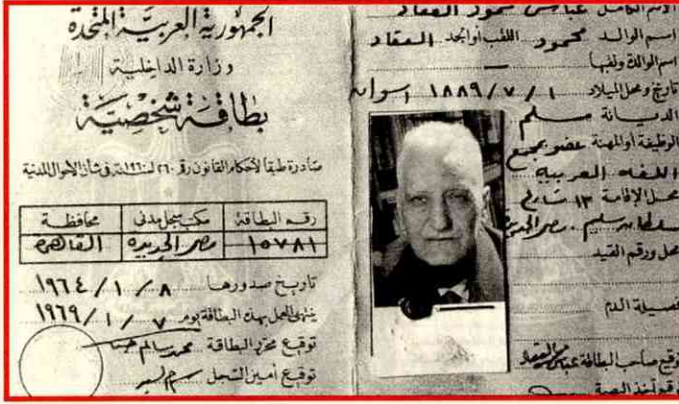 الجمهورية العربية المتحدة
وزارة الداخلية
بطاقة شخصية
صادرة طبقا لأحكام القانون رقم ٢٦٠ لسنة ١٩٦٠ في شأن الأحوال المدنية
رقم البطاقة مكتب سجل مدني محافظة
١٥٧٨١ مصر الجديدة القاهرة
تاريخ صدورها ٨ / ١ / ١٩٦٤
ينتهي العمل بهذه البطاقة يوم ٧ / ١ / ١٩٦٩
توقيع محرر البطاقة محمد سالم
توقيع أمين السجل
الاسم الكامل عباس محمود العقاد
اسم الوالد محمود اللقب أو الجد العقاد
اسم الوالدة ولقبها
تاريخ ومحل الميلاد ١ / ٧ / ١٨٨٩ اسوان
الديانة مسلم
الوظيفة أو المهنة عضو بمجمع
اللغه العربيه
محل الإقامة ١٣ شارع
سلطان سليم . مصر الجديدة
محل ورقم القيد
فصيلة الدم
توقيع صاحب البطاقة عباس العقاد